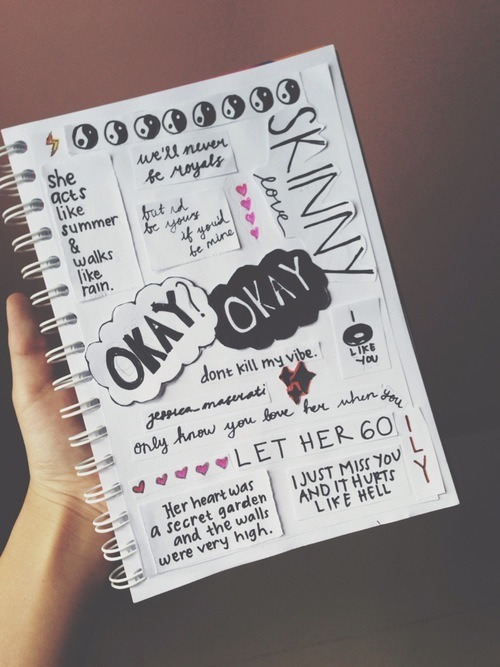 she
acts
like
summer
&
walks
like
rain.
we'll never
be royals
but id
be yours
if you'd
be mine
SKINNY
love
OKAY!
OKAY
I
LIKE
YOU
dont kill my vibe.
jessica_maserati
only know you love her when you
LET HER GO
ILY
Her heart was
a secret garden
and the walls
were very high.
I JUST MISS YOU
AND IT HURTS
LIKE HELL